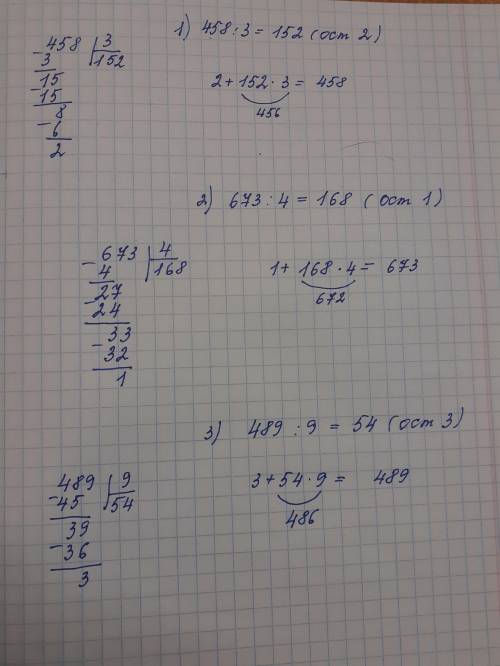 1) 458 : 3 = 152 (ост 2)
458 3
3 152
15
15
8
6
2
2 + 152 · 3 = 458
456
2) 673 : 4 = 168 (ост 1)
673 4
4 168
27
24
33
32
1
1 + 168 · 4 = 673
672
3) 489 : 9 = 54 (ост 3)
489 9
45 54
39
36
3
3 + 54 · 9 = 489
486